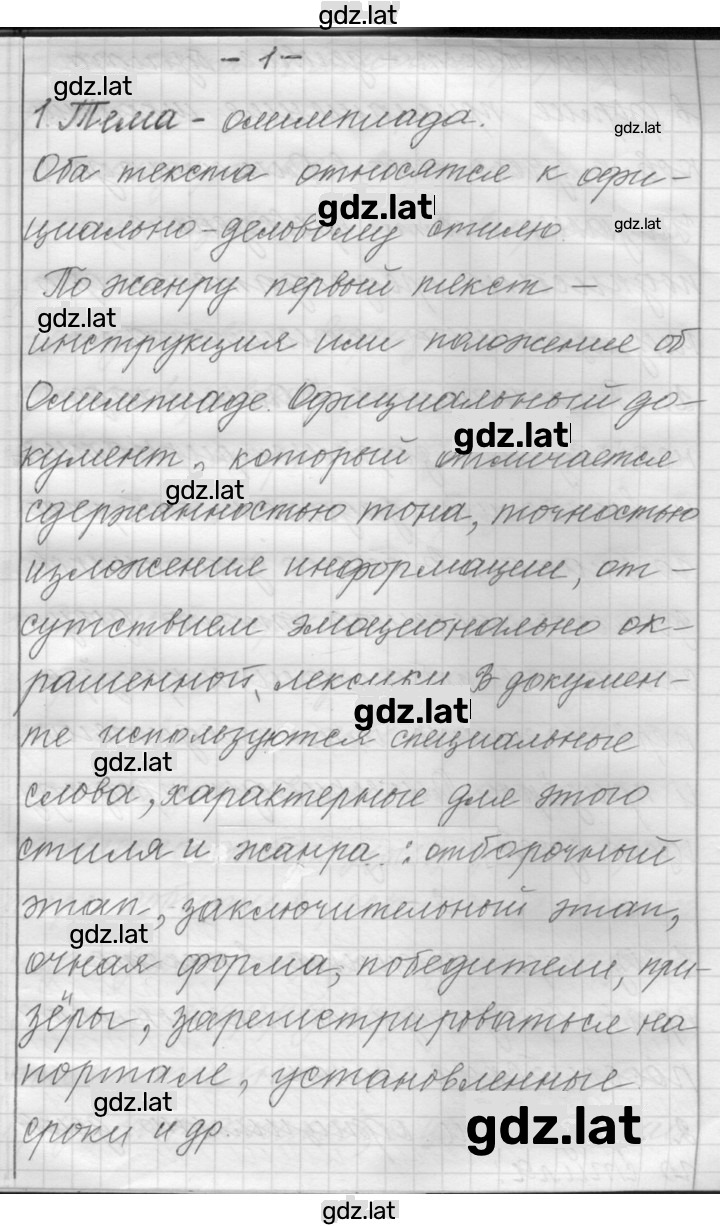 gdz.lat
- 1 -
gdz.lat
1. Тема - олимпиада.
gdz.lat
Оба текста относятся к офи-
gdz.lat
gdz.lat
циально-деловому стилю.
По жанру первый текст -
gdz.lat
инструкция или положение об
Олимпиаде. Официальный до-
gdz.lat
кумент, который отличается
gdz.lat
сдержанностью тона, точностью
изложение информации, от-
сутствием эмоционально ок-
рашенной лексики. В докумен-
gdz.lat
те используются специальные
gdz.lat
слова, характерные для этого
стиля и жанра: отборочный
этап, заключительный этап,
gdz.lat
очная форма, победители, при-
зёры, зарегистрироваться на
портале, установленные
gdz.lat
сроки и др.
gdz.lat
gdz.lat